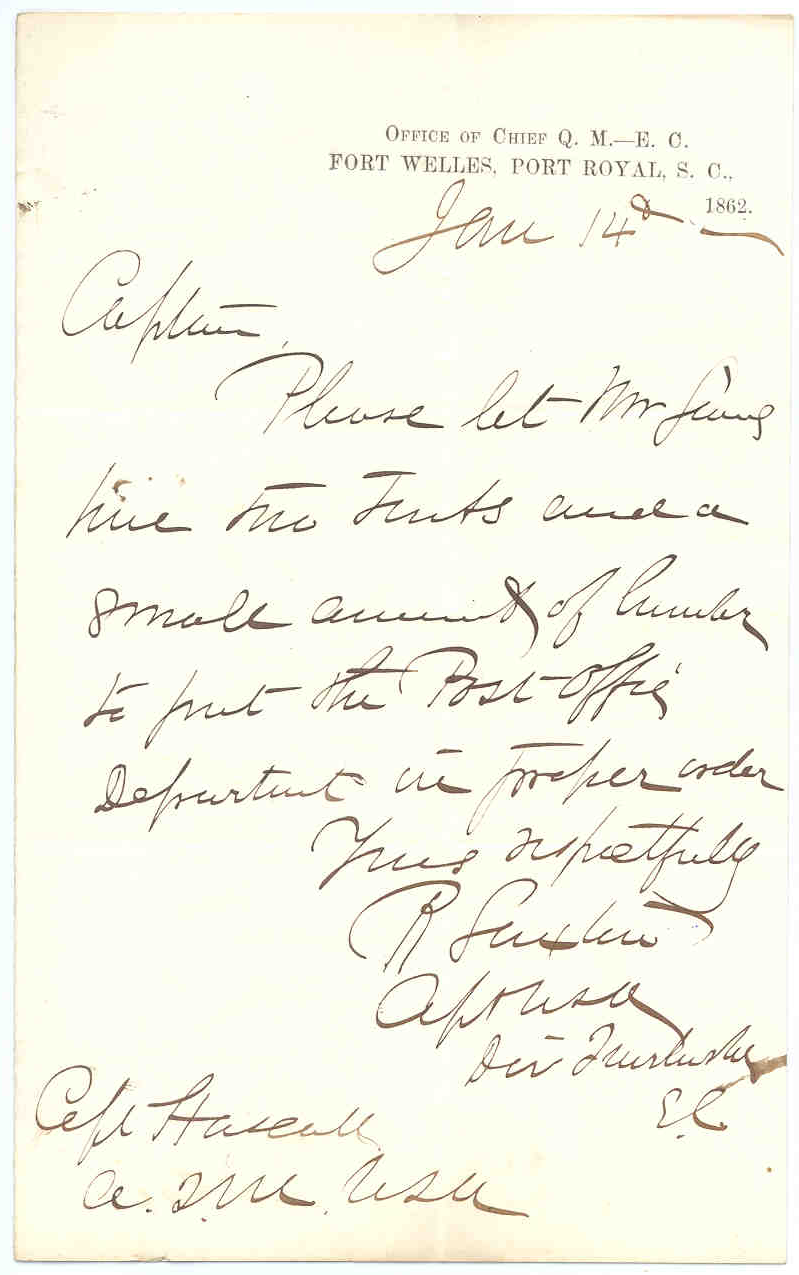 OFFICE OF CHIEF Q. M.—E. C.
FORT WELLES, PORT ROYAL, S. C.,
Jan 14th 1862.
Captain,
Please let Mr
have two tents and a
small amount of lumber
to put the Post Office
Department in proper order
Yours respectfully
R Saxton
Capt USA
Div Quartermaster
E.C.
Capt Hascall
A.Q.M. USA